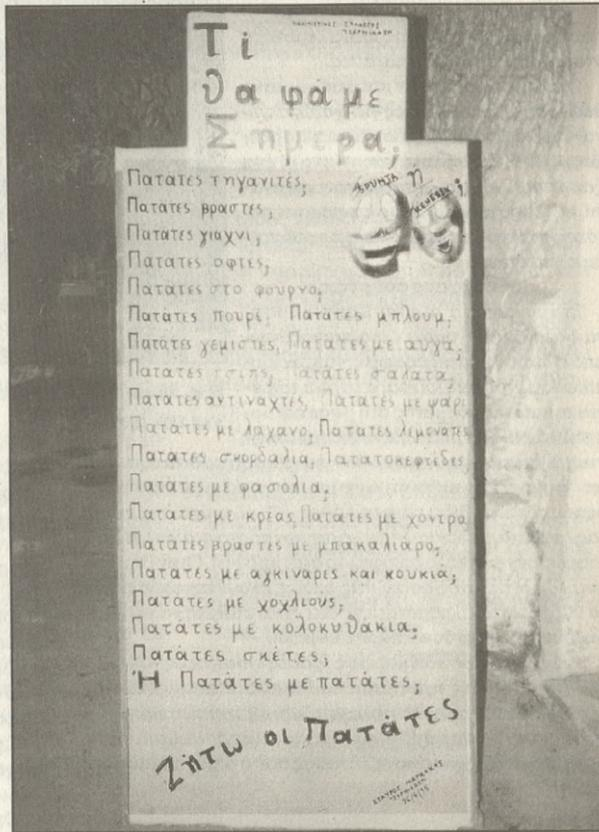 ΠΟΛΙΤΙΣΤΙΚΟΣ ΣΥΛΛΟΓΟΣ
Τί
θα φάμε
Σήμερα;
ΣΠΟΥΝΤΑ ή
Πατάτες τηγανιτές;
Πατάτες βραστές;
Πατάτες γιαχνί;
Πατάτες οφτές;
Πατάτες στο φούρνο;
Πατάτες πουρέ; Πατάτες μπλουμ;
Πατάτες γεμιστές; Πατάτες με αυγά;
Πατάτες τσιπς; Πατάτες σαλάτα;
Πατάτες αντιναχτές; Πατάτες με ψάρι
Πατάτες με λάχανο; Πατάτες λεμονάτες
Πατάτες σκορδαλιά; Πατατοκεφτέδες;
Πατάτες με φασόλια;
Πατάτες με κρέας; Πατάτες με χόντρο
Πατάτες βραστές με μπακαλιάρο;
Πατάτες με αγκινάρες και κουκιά;
Πατάτες με χοχλιούς;
Πατάτες με κολοκυθάκια;
Πατάτες σκέτες;
Ή Πατάτες με πατάτες;
Ζήτω οι Πατάτες
ΣΤΑΥΡΟΣ